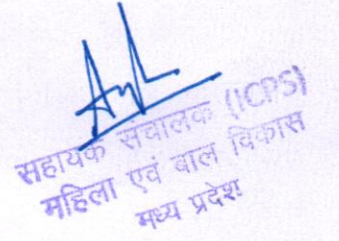 सहायक संचालक (ICPS)
महिला एवं बाल विकास
मध्य प्रदेश